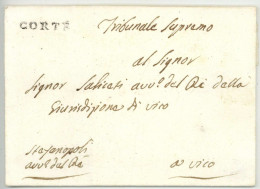 CORTÉ
Tribunale Supremo
al Signor
Signor Saliceti avvº del Ré della
Giurisdizione di vico
Stefanopoli
avvº del Ré
a vico